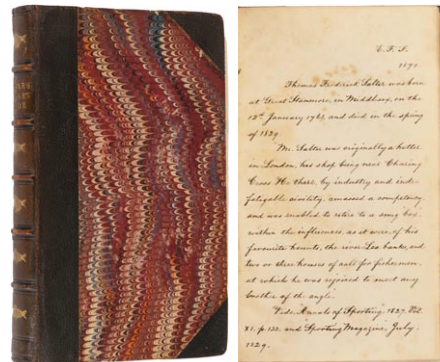 T. F. S.
1891
Thomas Frederick Salter was born
at Great Stanmore, in Middlesex, on the
12th January 1761 and died in the spring
of 1829.
Mr. Salter was originally a hatter
in London, his shop being near Charing
Cross. He there, by industry and inde-
fatigable civility, amassed a competency,
and was enabled to retire to a snug box
within the influences, as it were, of his
favourite haunts, the river Lea banks, and
two or three houses of call for fishermen,
at which he was rejoiced to meet any
brother of the angle.
Vide, Annals of Sporting, 1827, Vol.
XI. p. 133. and Sporting Magazine, July
1829.